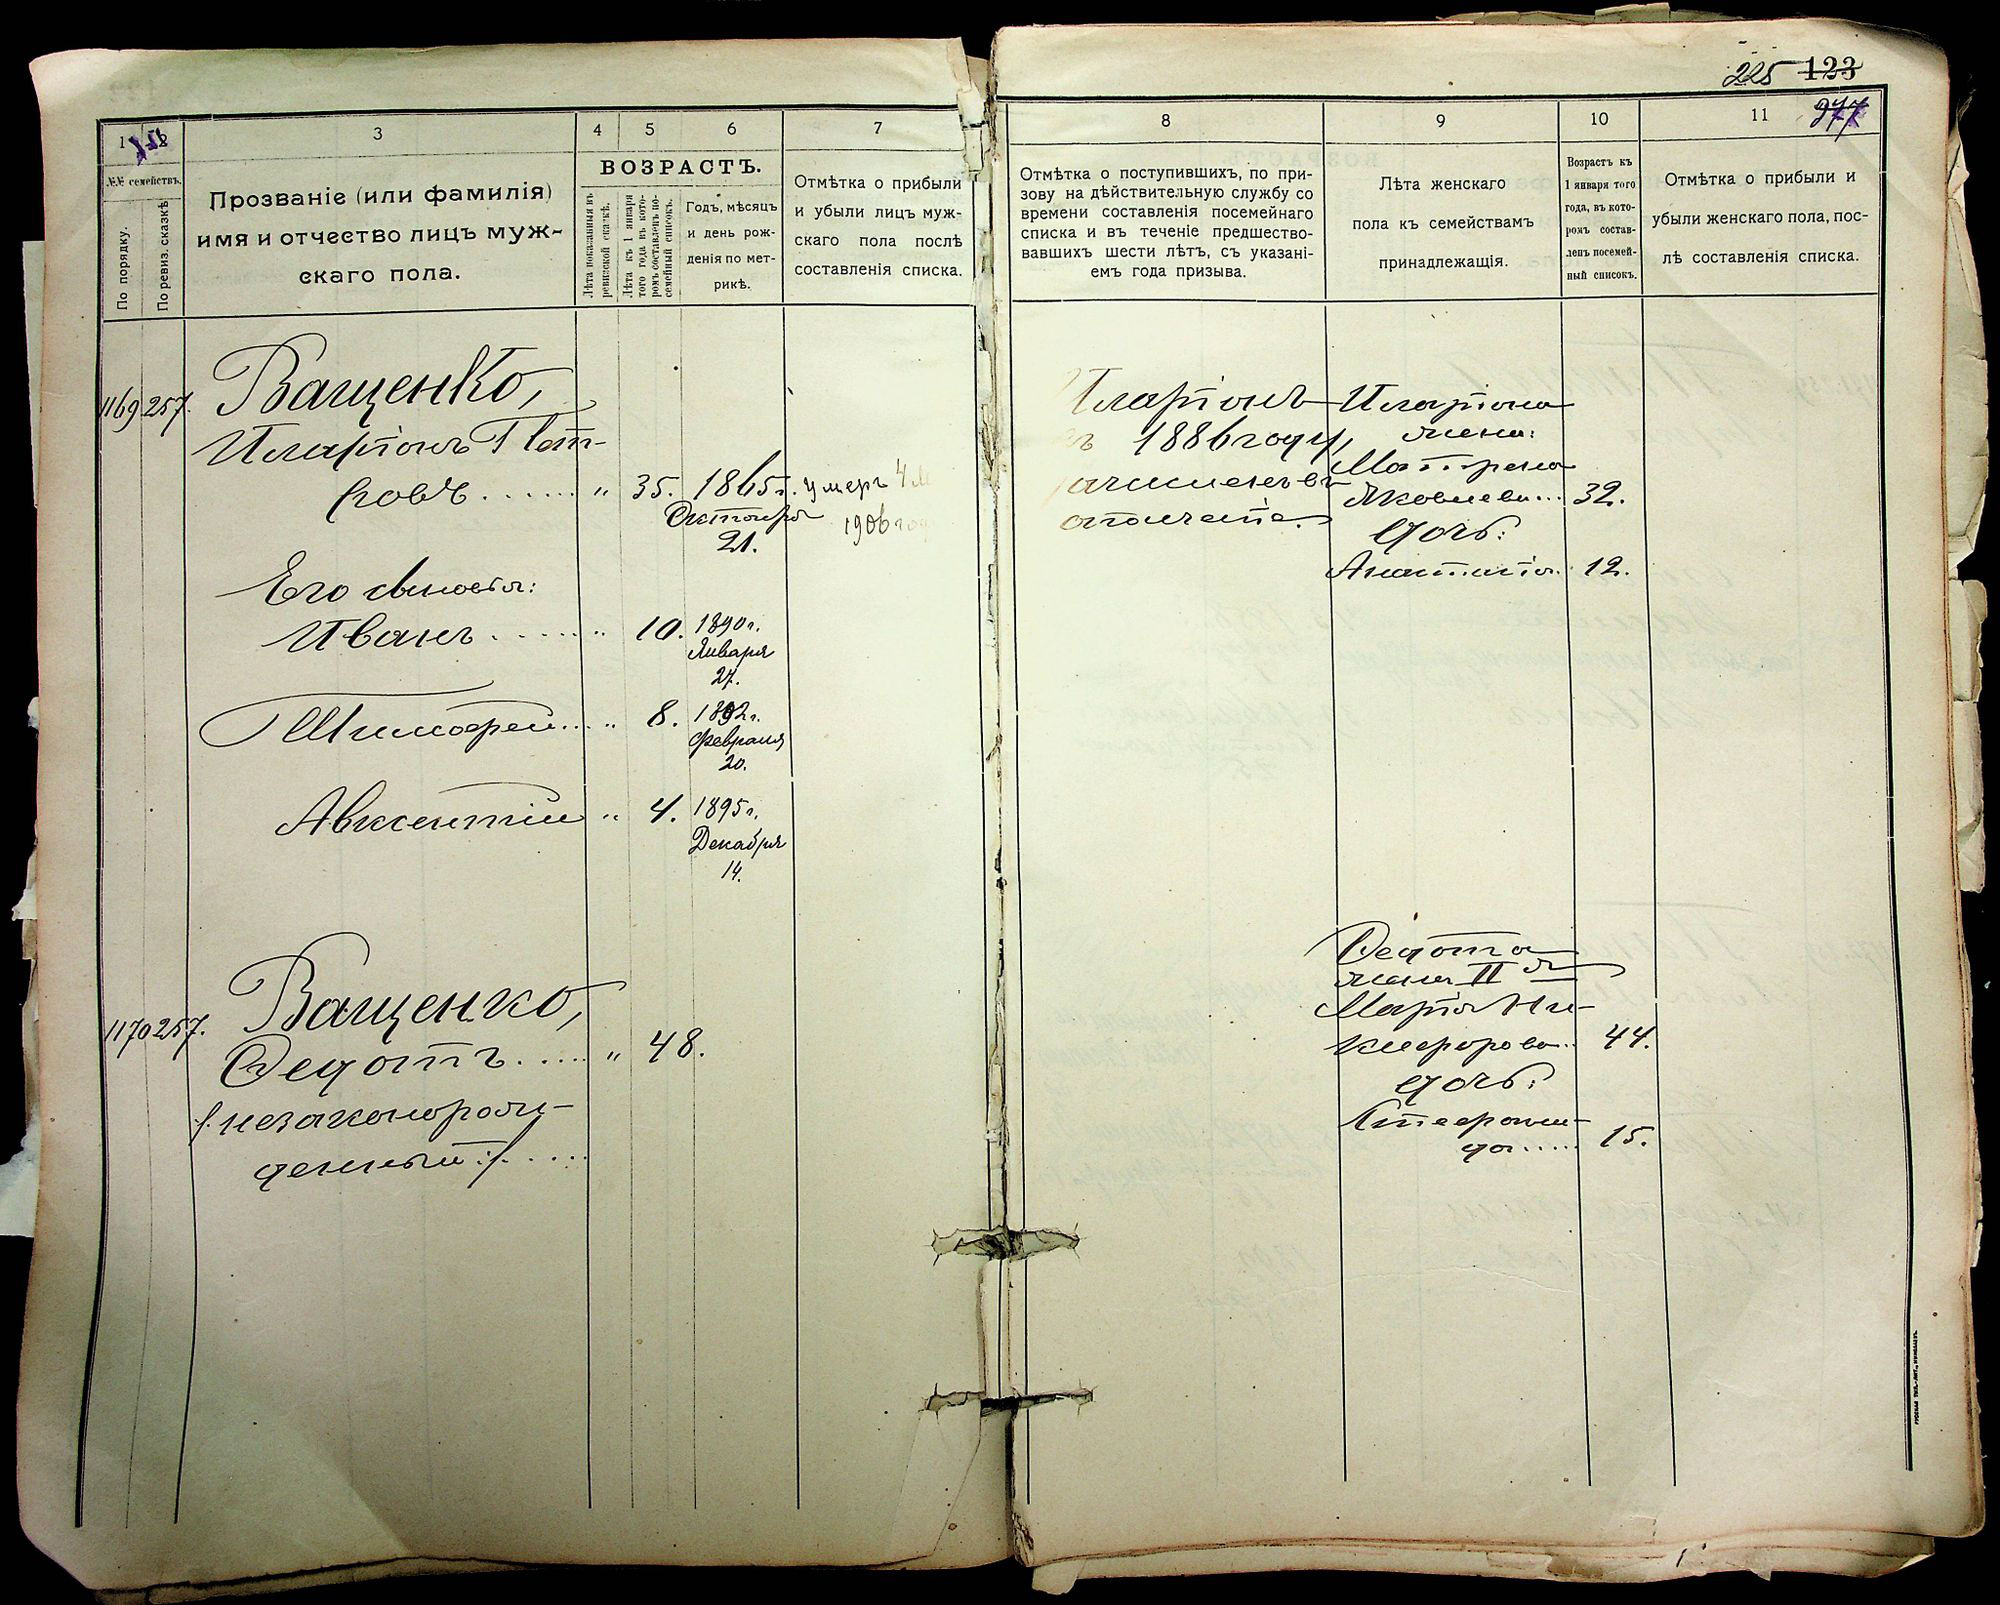 225 123
1 2 3 4 5 6 7
№№ семействъ.
По порядку.
По ревиз. сказкѣ
Прозваніе (или фамилія)
имя и отчество лицъ муж-
скаго пола.
ВОЗРАСТЪ.
Лѣта показанныя въ
ревизской сказкѣ.
Лѣта къ 1 января
того года въ кото-
ромъ составленъ по-
семейный списокъ.
Годъ, мѣсяцъ
и день рож-
денія по мет-
рикѣ.
Отмѣтка о прибыли
и убыли лицъ муж-
скаго пола послѣ
составленія списка.
1169 257. Ващенко,
Иларіонъ Пет-
ровъ . . . . . . „ 35. 1865 г. умеръ 4 м
Октября 1906 го
21.
Его сыновья:
Иванъ . . . . . . „ 10. 1890 г.
Января
27.
Тимофей . . . „ 8. 1892 г.
Февраля
20.
Авксентій „ 4. 1895 г.
Декабря
14.
1170 257. Ващенко,
Федотъ . . . . . „ 48.
/:незаконорож-
денный:/ . . . . .
8 9 10 11 377
Отмѣтка о поступившихъ, по при-
зову на дѣйствительную службу со
времени составленія посемейнаго
списка и въ теченіе предшество-
вавшихъ шести лѣтъ, съ указані-
емъ года призыва.
Лѣта женскаго
пола къ семействамъ
принадлежащія.
Возрастъ къ
1 января того
года, въ кото-
ромъ состав-
ленъ посемей-
ный списокъ.
Отмѣтка о прибыли и
убыли женскаго пола, пос-
лѣ составленія списка.
Иларіонъ
въ 1886 году,
зачисленъ въ
ополченіе.
Иларіона
жена:
Матрена
Яковлева... 32.
Дочь:
Анастасія. 12.
Федота
жена II я
Марія Ни-
кифорова.. 44.
дочь:
Степани-
да..... 15.
РУССКАЯ ТИП.-ЛИТ., НИКОЛАЕВЪ.